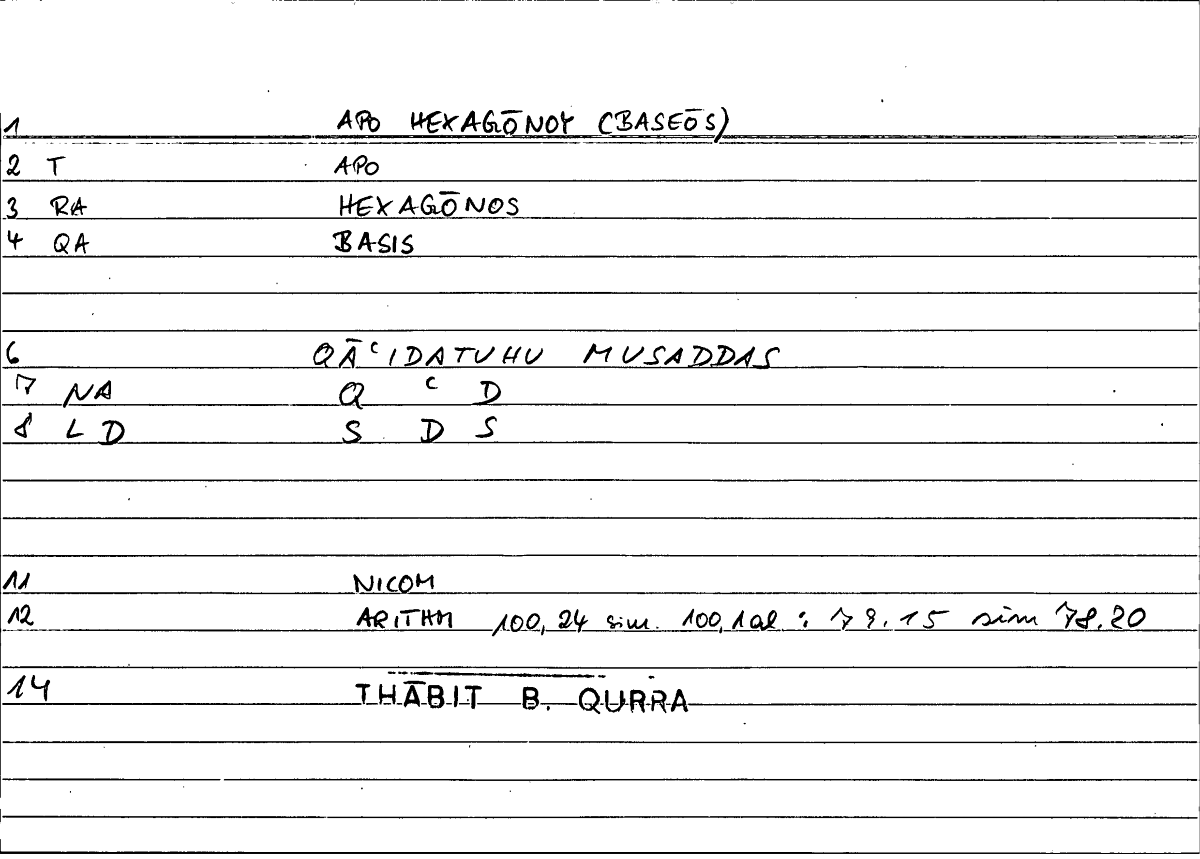 1 APO HEXAGŌNOY (BASEŌS)
2 T APO
3 RA HEXAGŌNOS
4 QA BASIS
6 QĀCIDATUHU MUSADDAS
7 NA Q C D
8 L D S D S
11 NICOM
12 ARITHM 100, 24 sim. 100, 1 al : 79.15 sim 78.20
14 THĀBIT B. QURRA